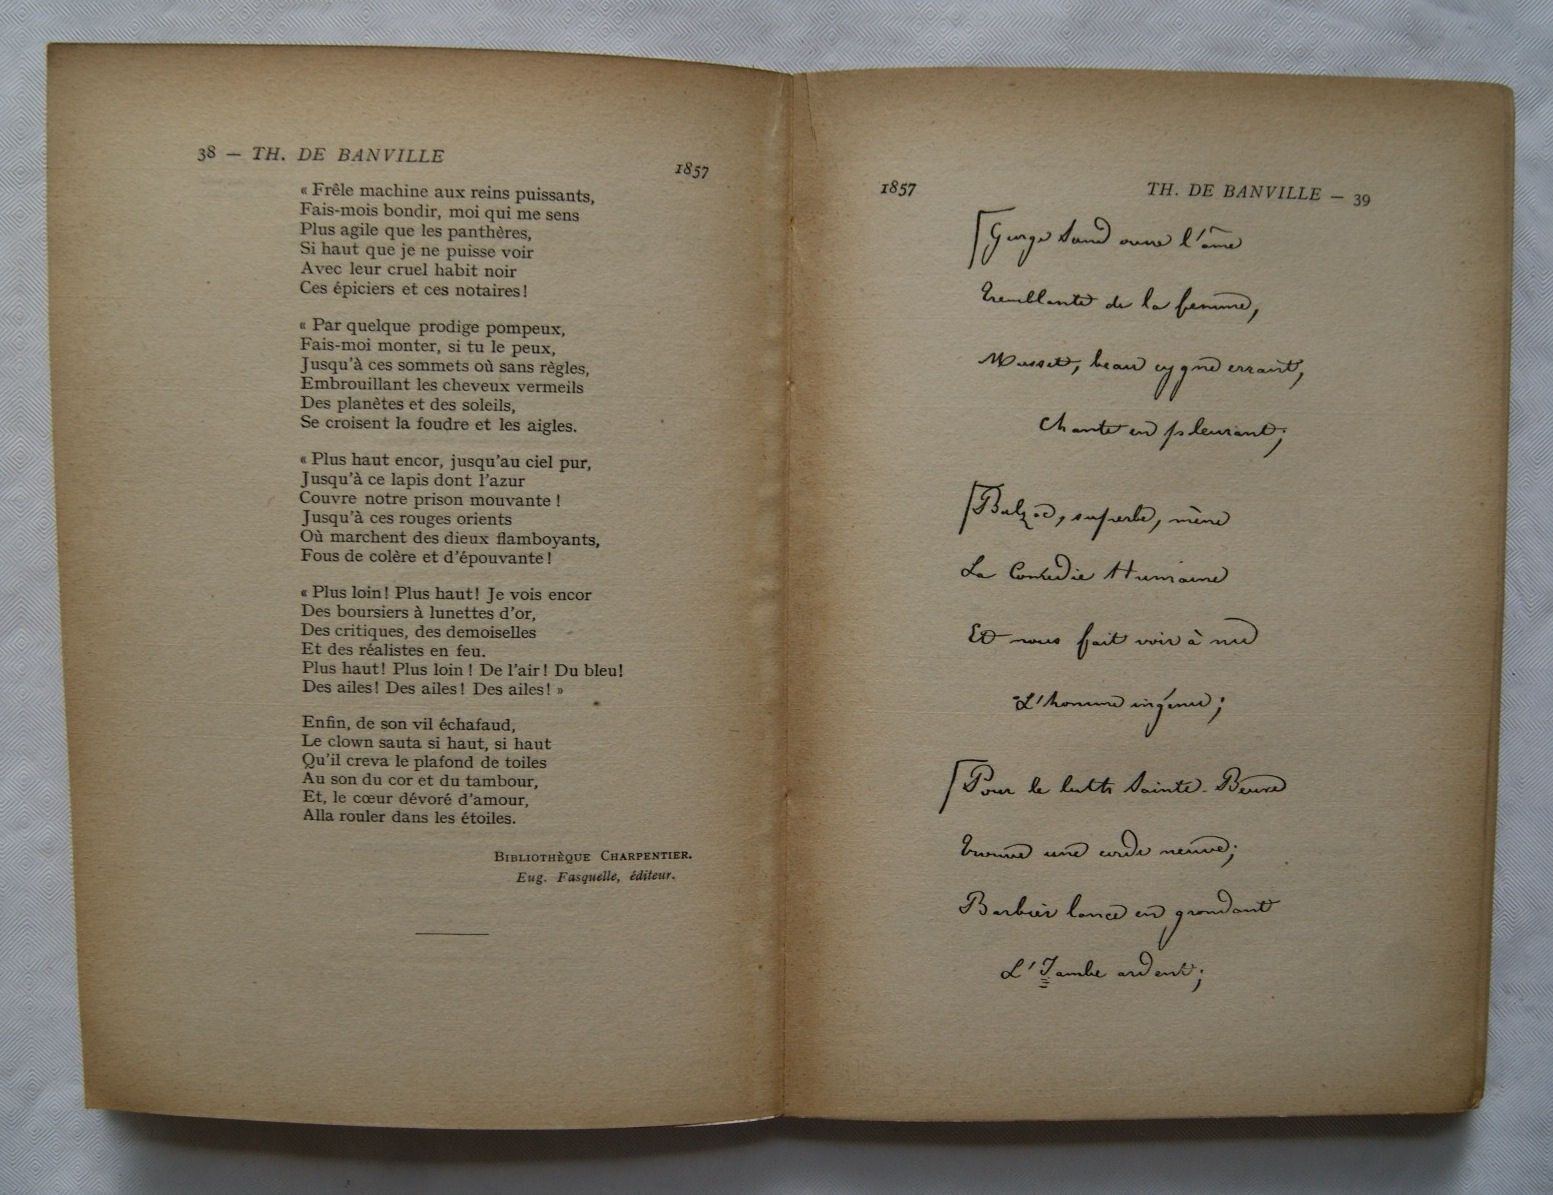 38 — TH. DE BANVILLE
1857
« Frêle machine aux reins puissants,
Fais-mois bondir, moi qui me sens
Plus agile que les panthères,
Si haut que je ne puisse voir
Avec leur cruel habit noir
Ces épiciers et ces notaires!
« Par quelque prodige pompeux,
Fais-moi monter, si tu le peux,
Jusqu'à ces sommets où sans règles,
Embrouillant les cheveux vermeils
Des planètes et des soleils,
Se croisent la foudre et les aigles.
« Plus haut encor, jusqu'au ciel pur,
Jusqu'à ce lapis dont l'azur
Couvre notre prison mouvante !
Jusqu'à ces rouges orients
Où marchent des dieux flamboyants,
Fous de colère et d'épouvante!
« Plus loin! Plus haut! Je vois encor
Des boursiers à lunettes d'or,
Des critiques, des demoiselles
Et des réalistes en feu.
Plus haut! Plus loin ! De l'air! Du bleu!
Des ailes! Des ailes! Des ailes! »
Enfin, de son vil échafaud,
Le clown sauta si haut, si haut
Qu'il creva le plafond de toiles
Au son du cor et du tambour,
Et, le cœur dévoré d'amour,
Alla rouler dans les étoiles.
BIBLIOTHÈQUE CHARPENTIER.
Eug. Fasquelle, éditeur.
1857
TH. DE BANVILLE — 39
George Sand ouvre l'âme
Tremblante de la femme,
Musset, beau cygne errant,
Chante en pleurant;
Balzac, superbe, mène
La Comédie Humaine
Et nous fait voir à nu
L'homme ingénu;
Pour le luth Sainte-Beuve
Trouve une corde neuve;
Barbier lance en grondant
L'Iambe ardent;